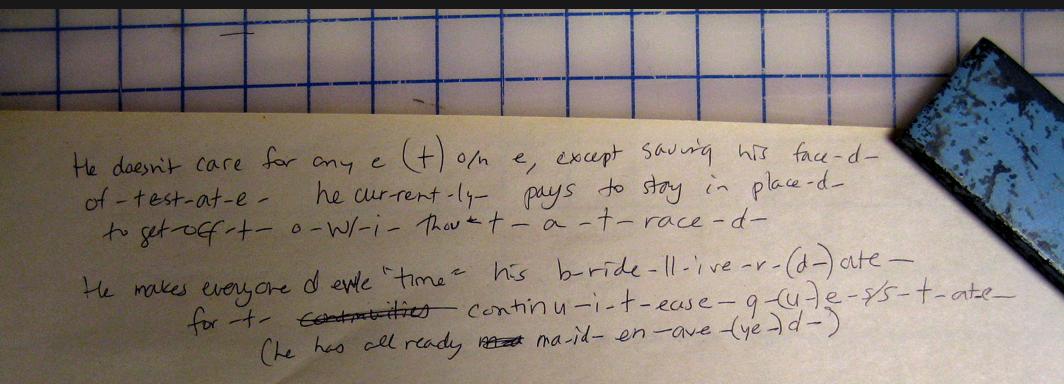 He doesn't care for any e (t) o/n e, except saving his face-d-
of-test-at-e- he cur-rent-ly- pays to stay in place-d-
to get-off-t- o-w/-i- thou t- a -t-race-d-
He makes everyone d "time" his b-ride-ll-ive-r-(d-)ate-
for -t- continu-i-t-ease-q-(u-)e-s/s-t-ate-
(he has all ready ma-id-en-ave-(ye-)d-)